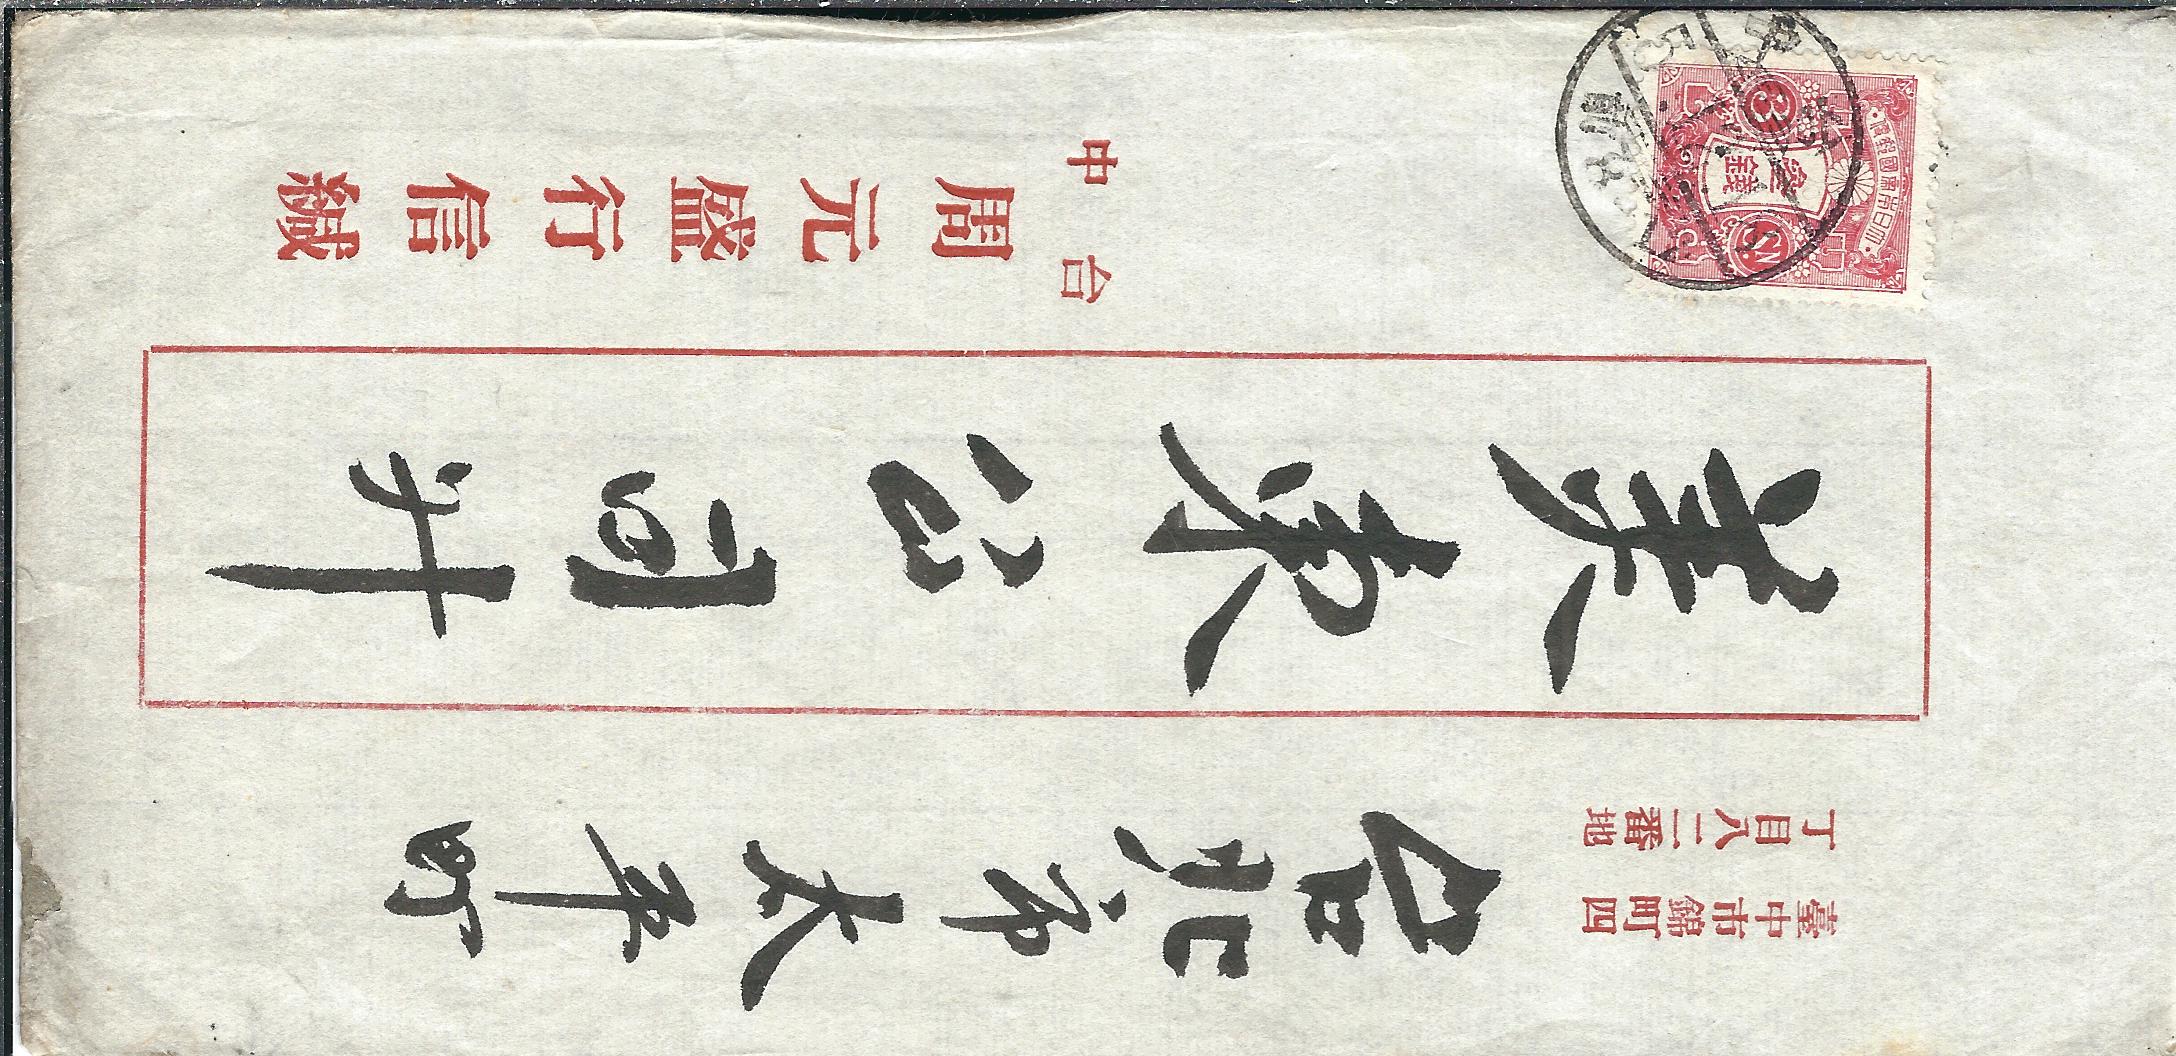 台北市太平町
臺中市錦町四
丁目八二番地
美東公司升
台中
周元盛行信緘
大日本帝國郵便
參錢
3
SN